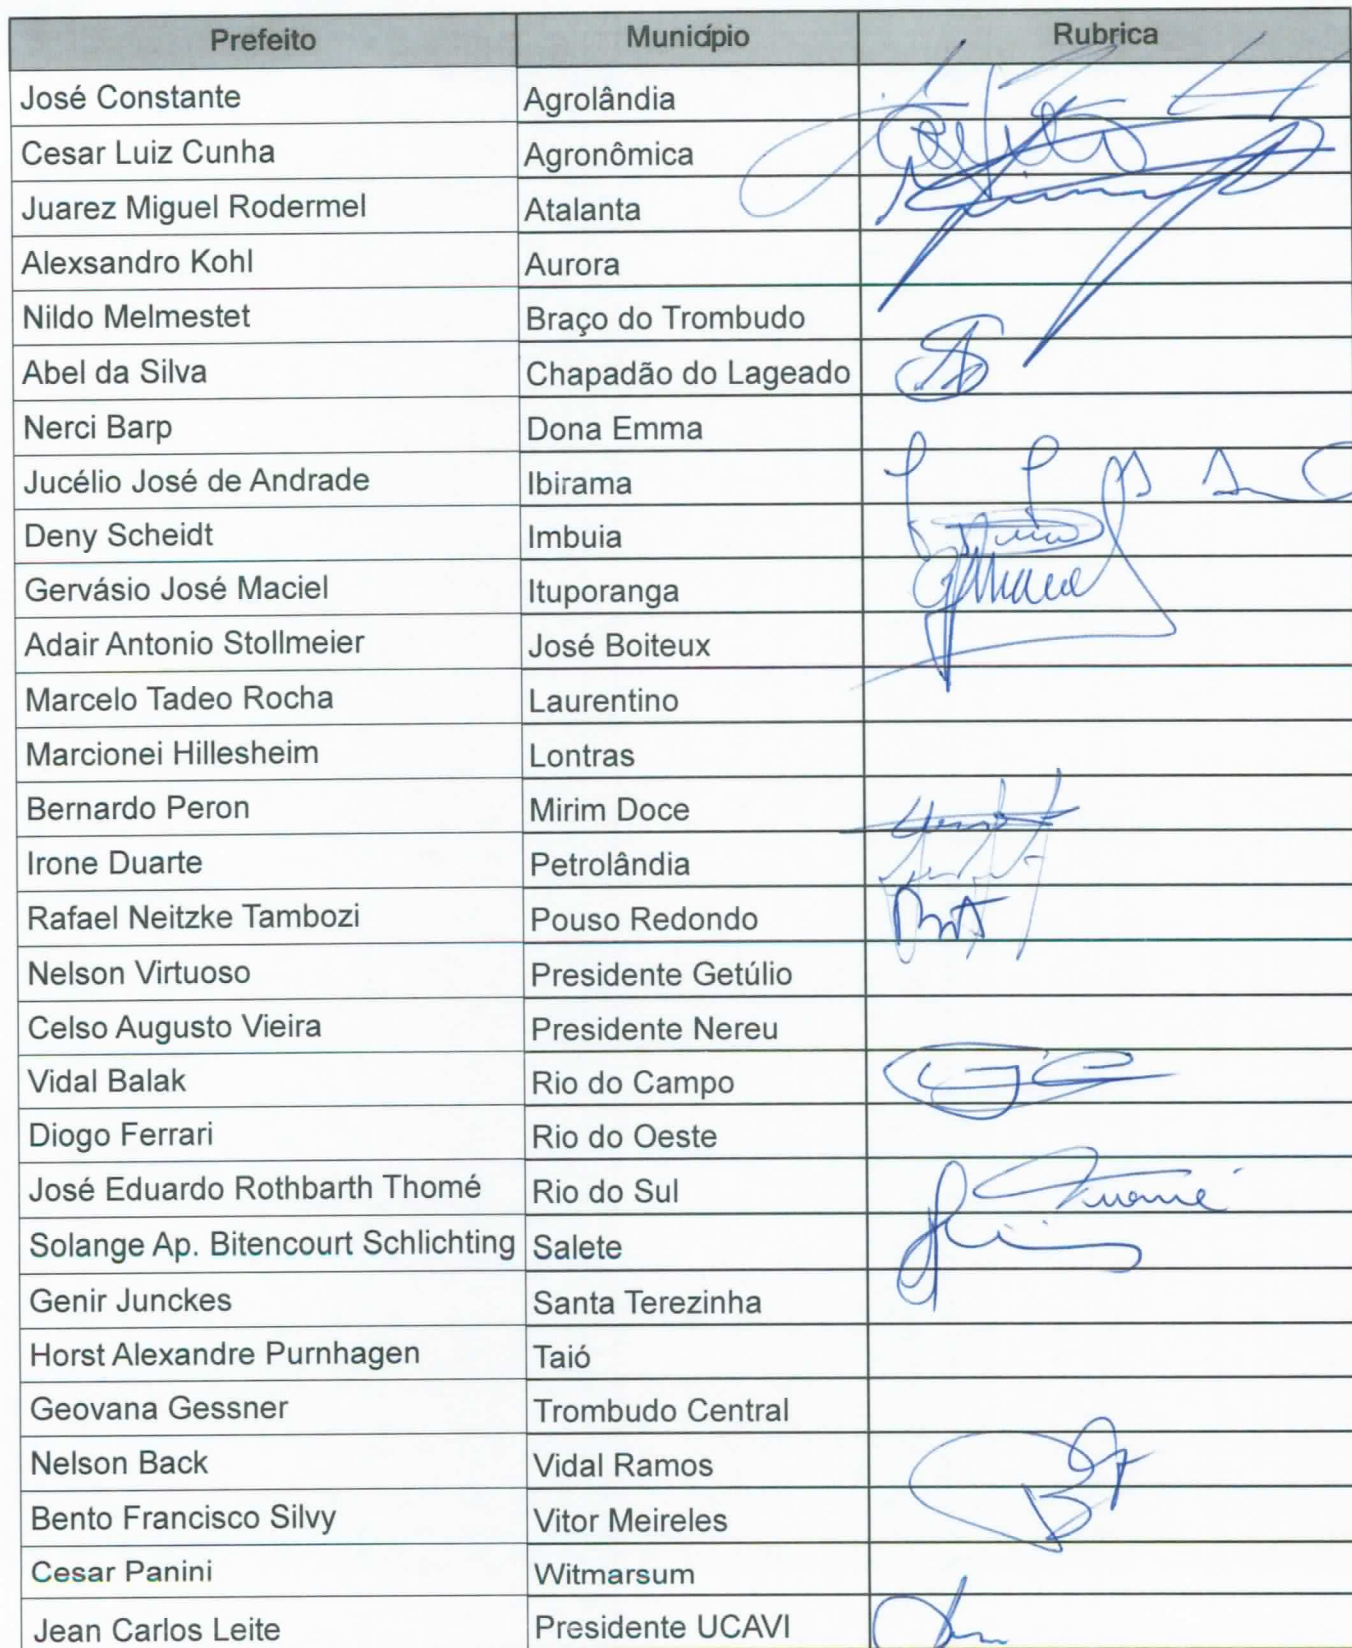 Prefeito Município Rubrica
José Constante Agrolândia
Cesar Luiz Cunha Agronômica
Juarez Miguel Rodermel Atalanta
Alexsandro Kohl Aurora
Nildo Melmestet Braço do Trombudo
Abel da Silva Chapadão do Lageado
Nerci Barp Dona Emma
Jucélio José de Andrade Ibirama
Deny Scheidt Imbuia
Gervásio José Maciel Ituporanga
Adair Antonio Stollmeier José Boiteux
Marcelo Tadeo Rocha Laurentino
Marcionei Hillesheim Lontras
Bernardo Peron Mirim Doce
Irone Duarte Petrolândia
Rafael Neitzke Tambozi Pouso Redondo
Nelson Virtuoso Presidente Getúlio
Celso Augusto Vieira Presidente Nereu
Vidal Balak Rio do Campo
Diogo Ferrari Rio do Oeste
José Eduardo Rothbarth Thomé Rio do Sul
Solange Ap. Bitencourt Schlichting Salete
Genir Junckes Santa Terezinha
Horst Alexandre Purnhagen Taió
Geovana Gessner Trombudo Central
Nelson Back Vidal Ramos
Bento Francisco Silvy Vitor Meireles
Cesar Panini Witmarsum
Jean Carlos Leite Presidente UCAVI